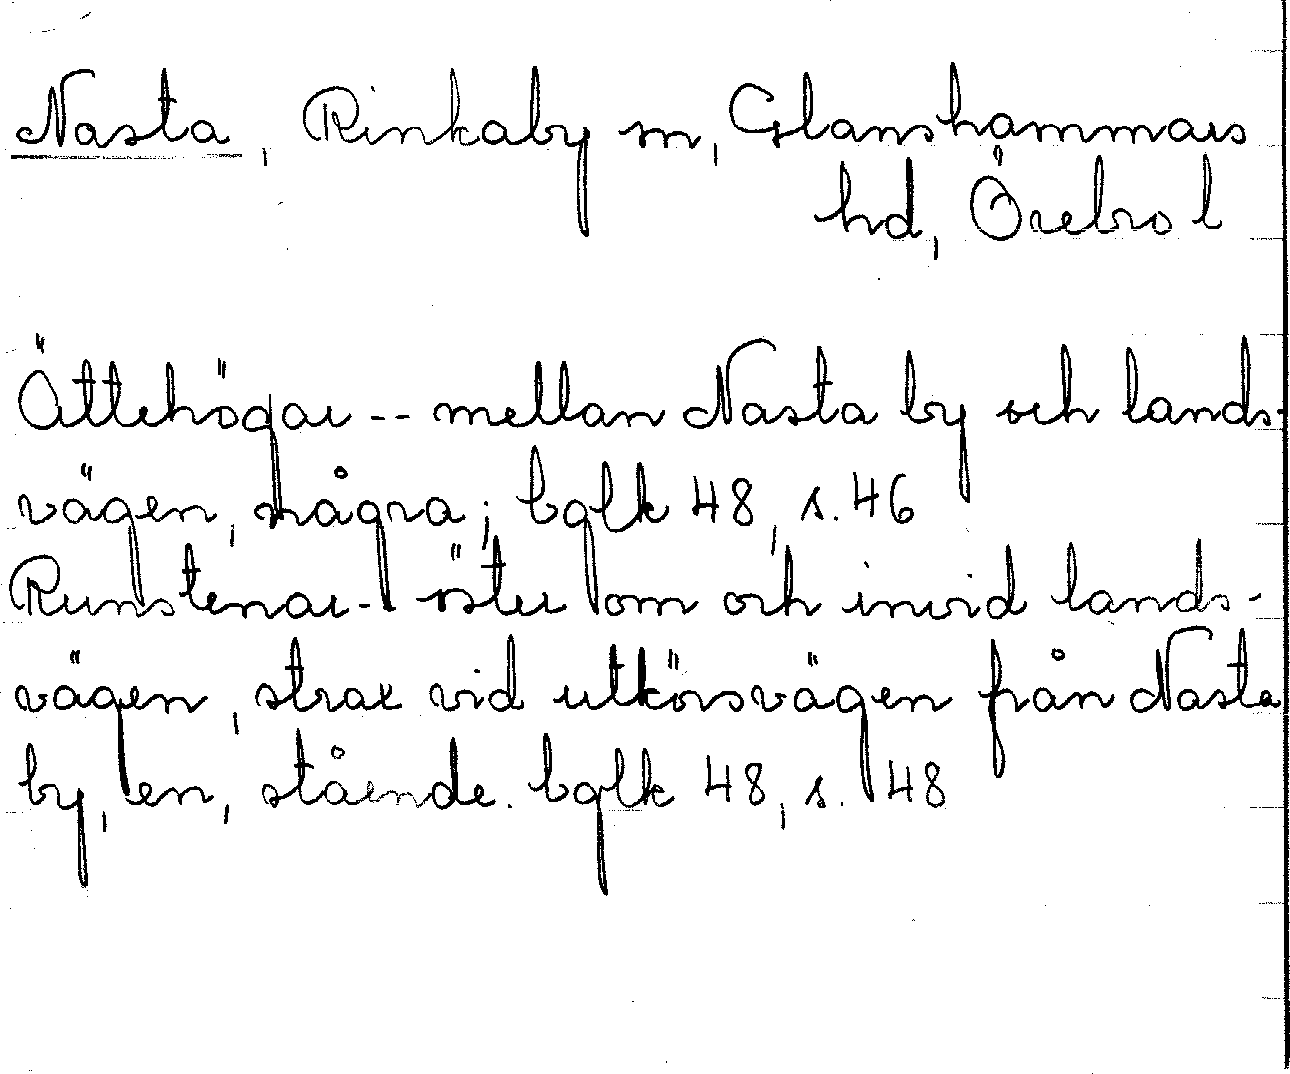 Nasta, Rinkaby sn, Glanshammars
hd, Örebro l
Ättehögar -- mellan Nasta by och lands-
vägen, några; bglk 48, s. 46
Runstenar - öster om och invid lands-
vägen, strax vid utkörsvägen från Nasta
by, en, stående. bglk 48, s. 48